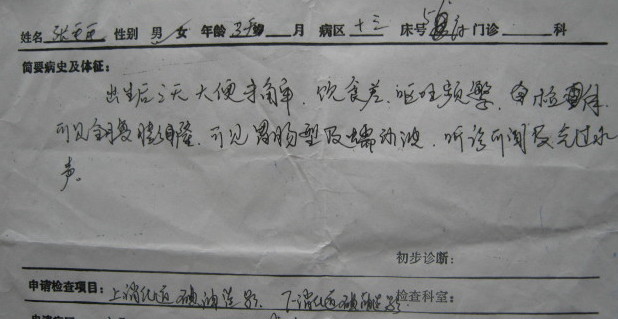 姓名 张 性别 男/女 年龄 3天 月 病区 十三 床号 门诊 科
简要病史及体征：
出生后3天大便未解,饮食差,呕吐频繁,查体
可见全腹膨隆,可见胃肠型及蠕动波,听诊可闻及气过水
声。
初步诊断：
申请检查项目：上消化道碘油造影 下消化道碘造影 检查科室：